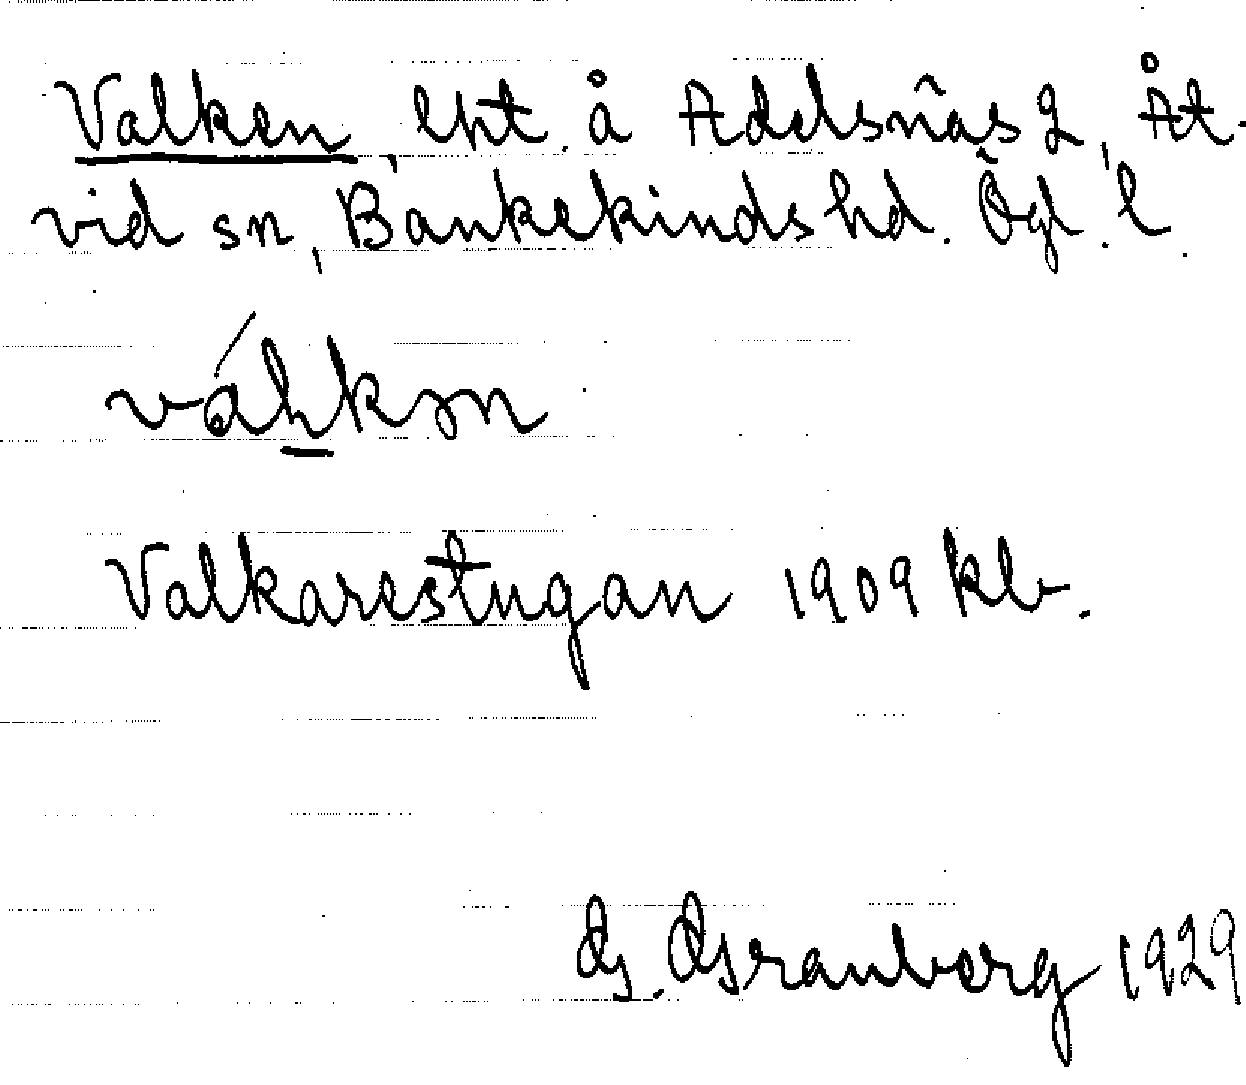 Valken, lht. å Adelsnäs 2, Åt-
vid sn, Bankekinds hd. Ögl. l.
Valkarestugan 1909 kb.
G. Granberg 1929